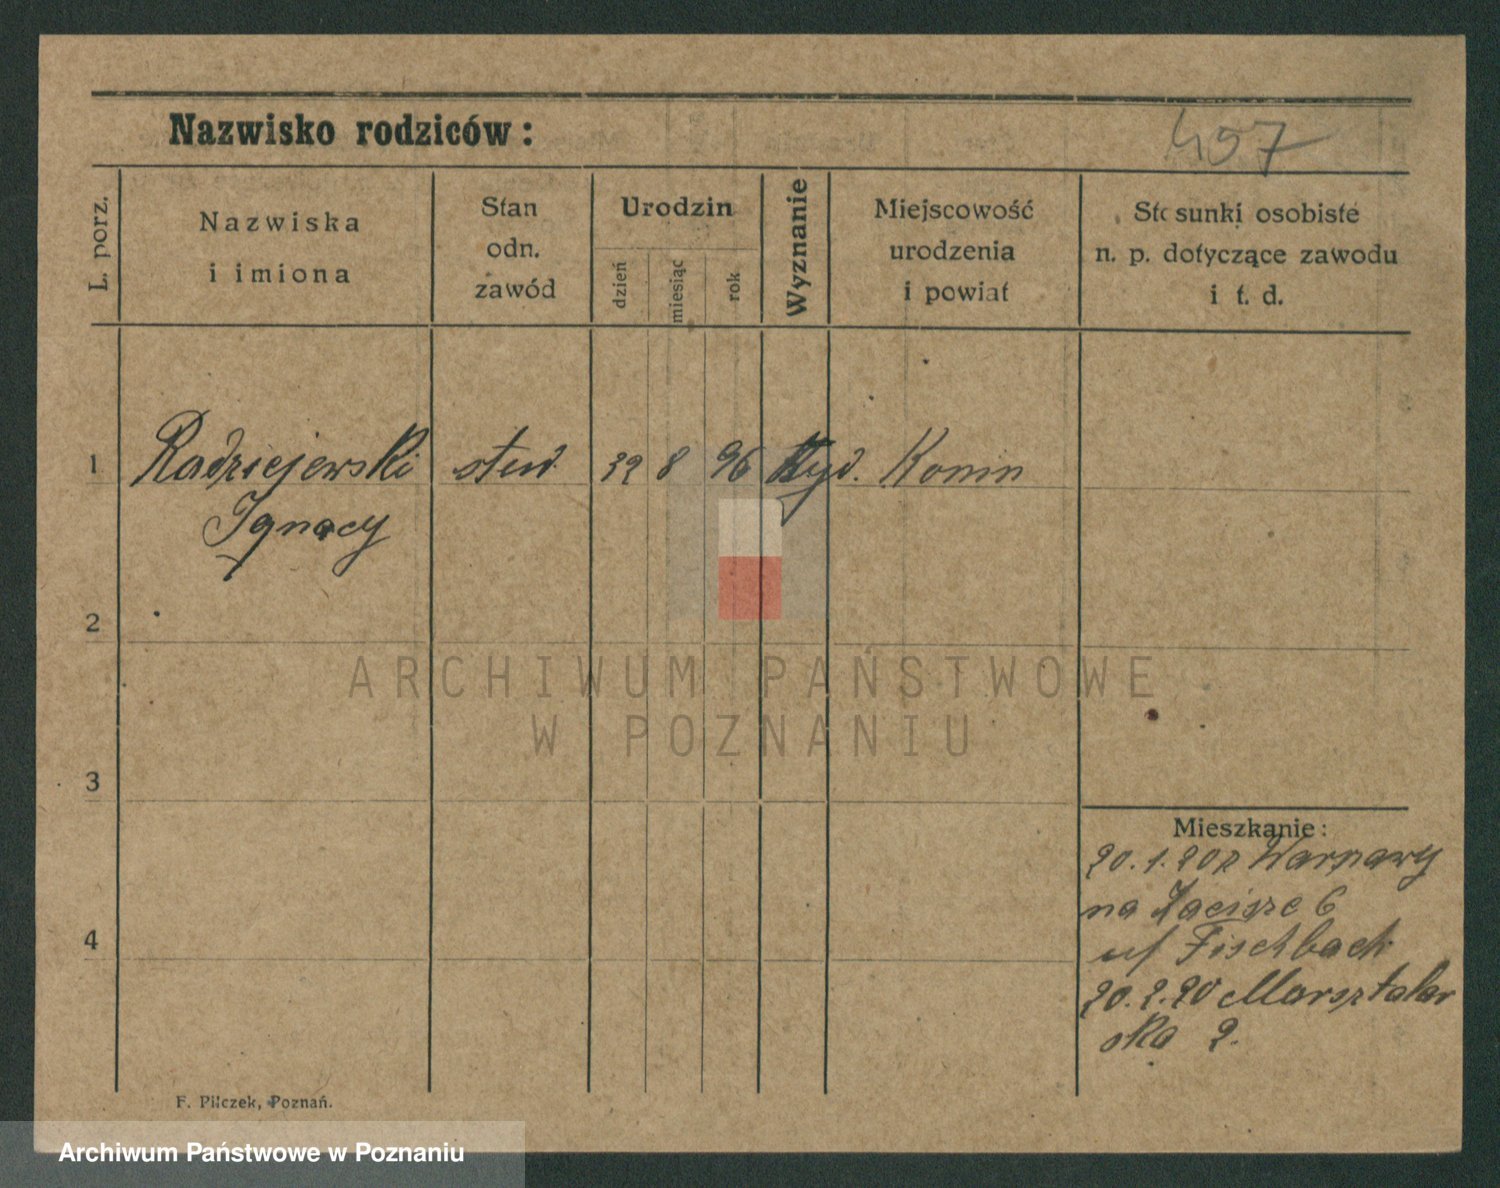 Nazwisko rodziców:
497
L. porz.
Nazwiska
i imiona
Stan
odn.
zawód
Urodzin
dzień
miesiąc
rok
Wyznanie
Miejscowość
urodzenia
i powiat
Stosunki osobiste
n. p. dotyczące zawodu
i t. d.
1 Radziejewski stud. 8 96 żyd. Konin
Ignacy
2
3
4
ARCHIWUM PAŃSTWOWE
W POZNANIU
Mieszkanie:
20.1.20 z Warszawy
na Zacisze 6
u/ Fischbach
20.2.20 Marsztalar
ska 2.
F. Pilczek, Poznań.
Archiwum Państwowe w Poznaniu